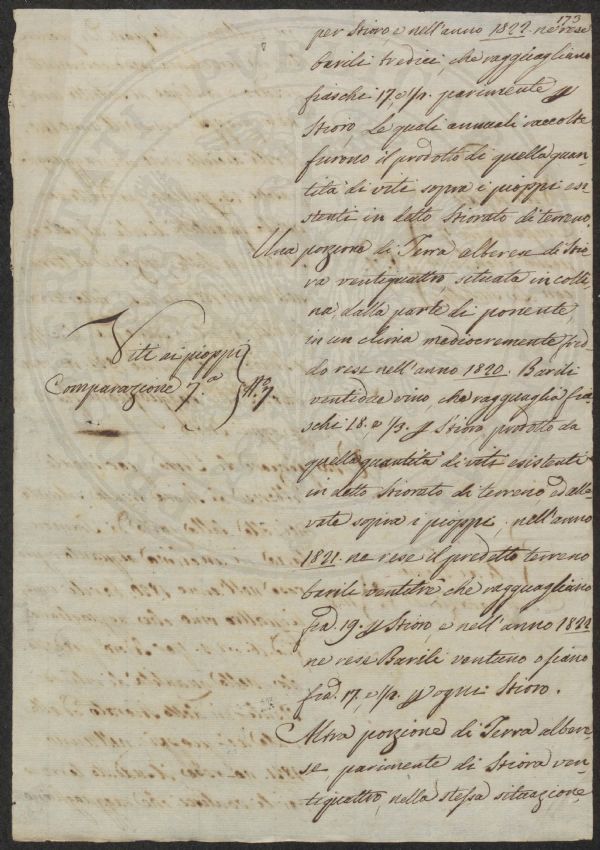 173
per Stioro, e nell'anno 1822. ne rese
barili tredici, che ragguagliano
fiaschi 17. e 1/2. parimente p
Stioro, Le quali annuali raccolte
furono il prodotto di quella quan-
tità di viti sopra i pioppi esi
stenti in detto Stiorato di terreno.
Una porzione di Terra alberese di Stio
ra ventiquattro, situata in colli
na, dalla parte di ponente
in un clima mediocremente fred
do rese nell'anno 1820. Barili
ventidue vino, che ragguaglia fia
schi 18. e 1/3. p Stioro, prodotto da
quella quantità di viti esistenti
in detto Stiorato di terreno ed alle
vate sopra i pioppi, nell'anno
1821. ne rese il predetto terreno
barili ventitrè che ragguagliano
fia. 19. p Stioro, e nell'anno 1822
ne rese Barili ventuno o siano
fia. 17. e 1/2. p ogni Stioro.
Viti ai pioppi
Comparazione 7.a
N.o 7.
Altra porzione di Terra albere-
se parimente di Stiora ven-
tiquattro, nella stessa situazione,